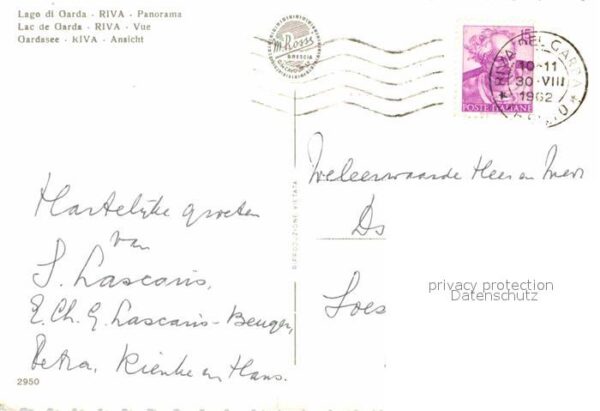 Lago di Garda - RIVA - Panorama
Lac de Garda - RIVA - Vue
Gardasee - RIVA - Ansicht
m. Rossi
BRESCIA
RIVA DEL GARDA
10-11
30·VIII
1962
POSTE ITALIANE
Hartelijke groeten
van
S. Lascaris,
E. Ch. G. Lascaris-Beuger,
Petra, Rienke en Hans.
2950
RIPRODUZIONE VIETATA
Weleerwaarde Heer en Mevr
Ds
Soes
privacy protection
Datenschutz